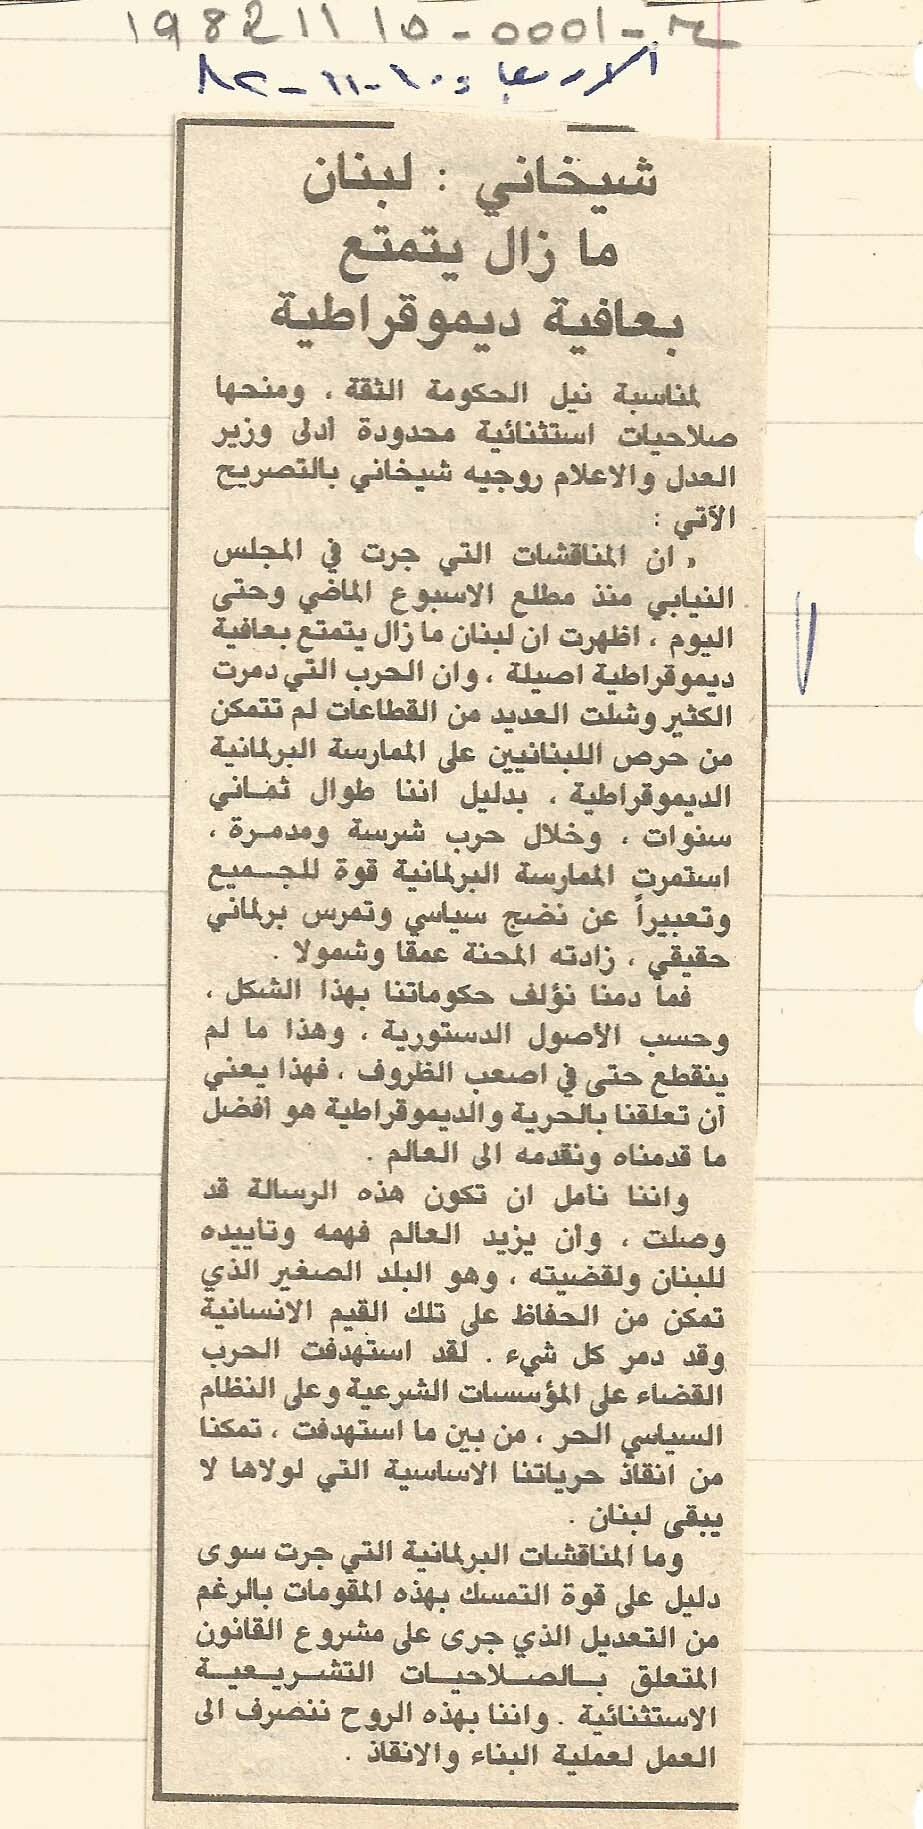 1982 11 10 - 0001 - م
الاربعاء ١٠-١١-٨٢
شيخاني : لبنان
ما زال يتمتع
بعافية ديموقراطية
لمناسبة نيل الحكومة الثقة ، ومنحها
صلاحيات استثنائية محدودة أدلى وزير
العدل والاعلام روجيه شيخاني بالتصريح
الآتي :
« ان المناقشات التي جرت في المجلس
النيابي منذ مطلع الاسبوع الماضي وحتى
اليوم ، اظهرت ان لبنان ما زال يتمتع بعافية
ديموقراطية اصيلة ، وان الحرب التي دمرت
الكثير وشلت العديد من القطاعات لم تتمكن
من حرص اللبنانيين على الممارسة البرلمانية
الديموقراطية ، بدليل اننا طوال ثماني
سنوات ، وخلال حرب شرسة ومدمرة ،
استمرت الممارسة البرلمانية قوة للجميع
وتعبيراً عن نضج سياسي وتمرس برلماني
حقيقي ، زادته المحنة عمقا وشمولا .
فما دمنا نؤلف حكوماتنا بهذا الشكل ،
وحسب الأصول الدستورية ، وهذا ما لم
ينقطع حتى في اصعب الظروف ، فهذا يعني
أن تعلقنا بالحرية والديموقراطية هو أفضل
ما قدمناه ونقدمه الى العالم .
واننا نأمل ان تكون هذه الرسالة قد
وصلت ، وأن يزيد العالم فهمه وتأييده
للبنان ولقضيته ، وهو البلد الصغير الذي
تمكن من الحفاظ على تلك القيم الانسانية
وقد دمر كل شيء . لقد استهدفت الحرب
القضاء على المؤسسات الشرعية وعلى النظام
السياسي الحر ، من بين ما استهدفت ، تمكنا
من انقاذ حرياتنا الاساسية التي لولاها لا
يبقى لبنان .
وما المناقشات البرلمانية التي جرت سوى
دليل على قوة التمسك بهذه المقومات بالرغم
من التعديل الذي جرى على مشروع القانون
المتعلق بالصلاحيات التشريعية
الاستثنائية . واننا بهذه الروح ننصرف الى
العمل لعملية البناء والانقاذ .